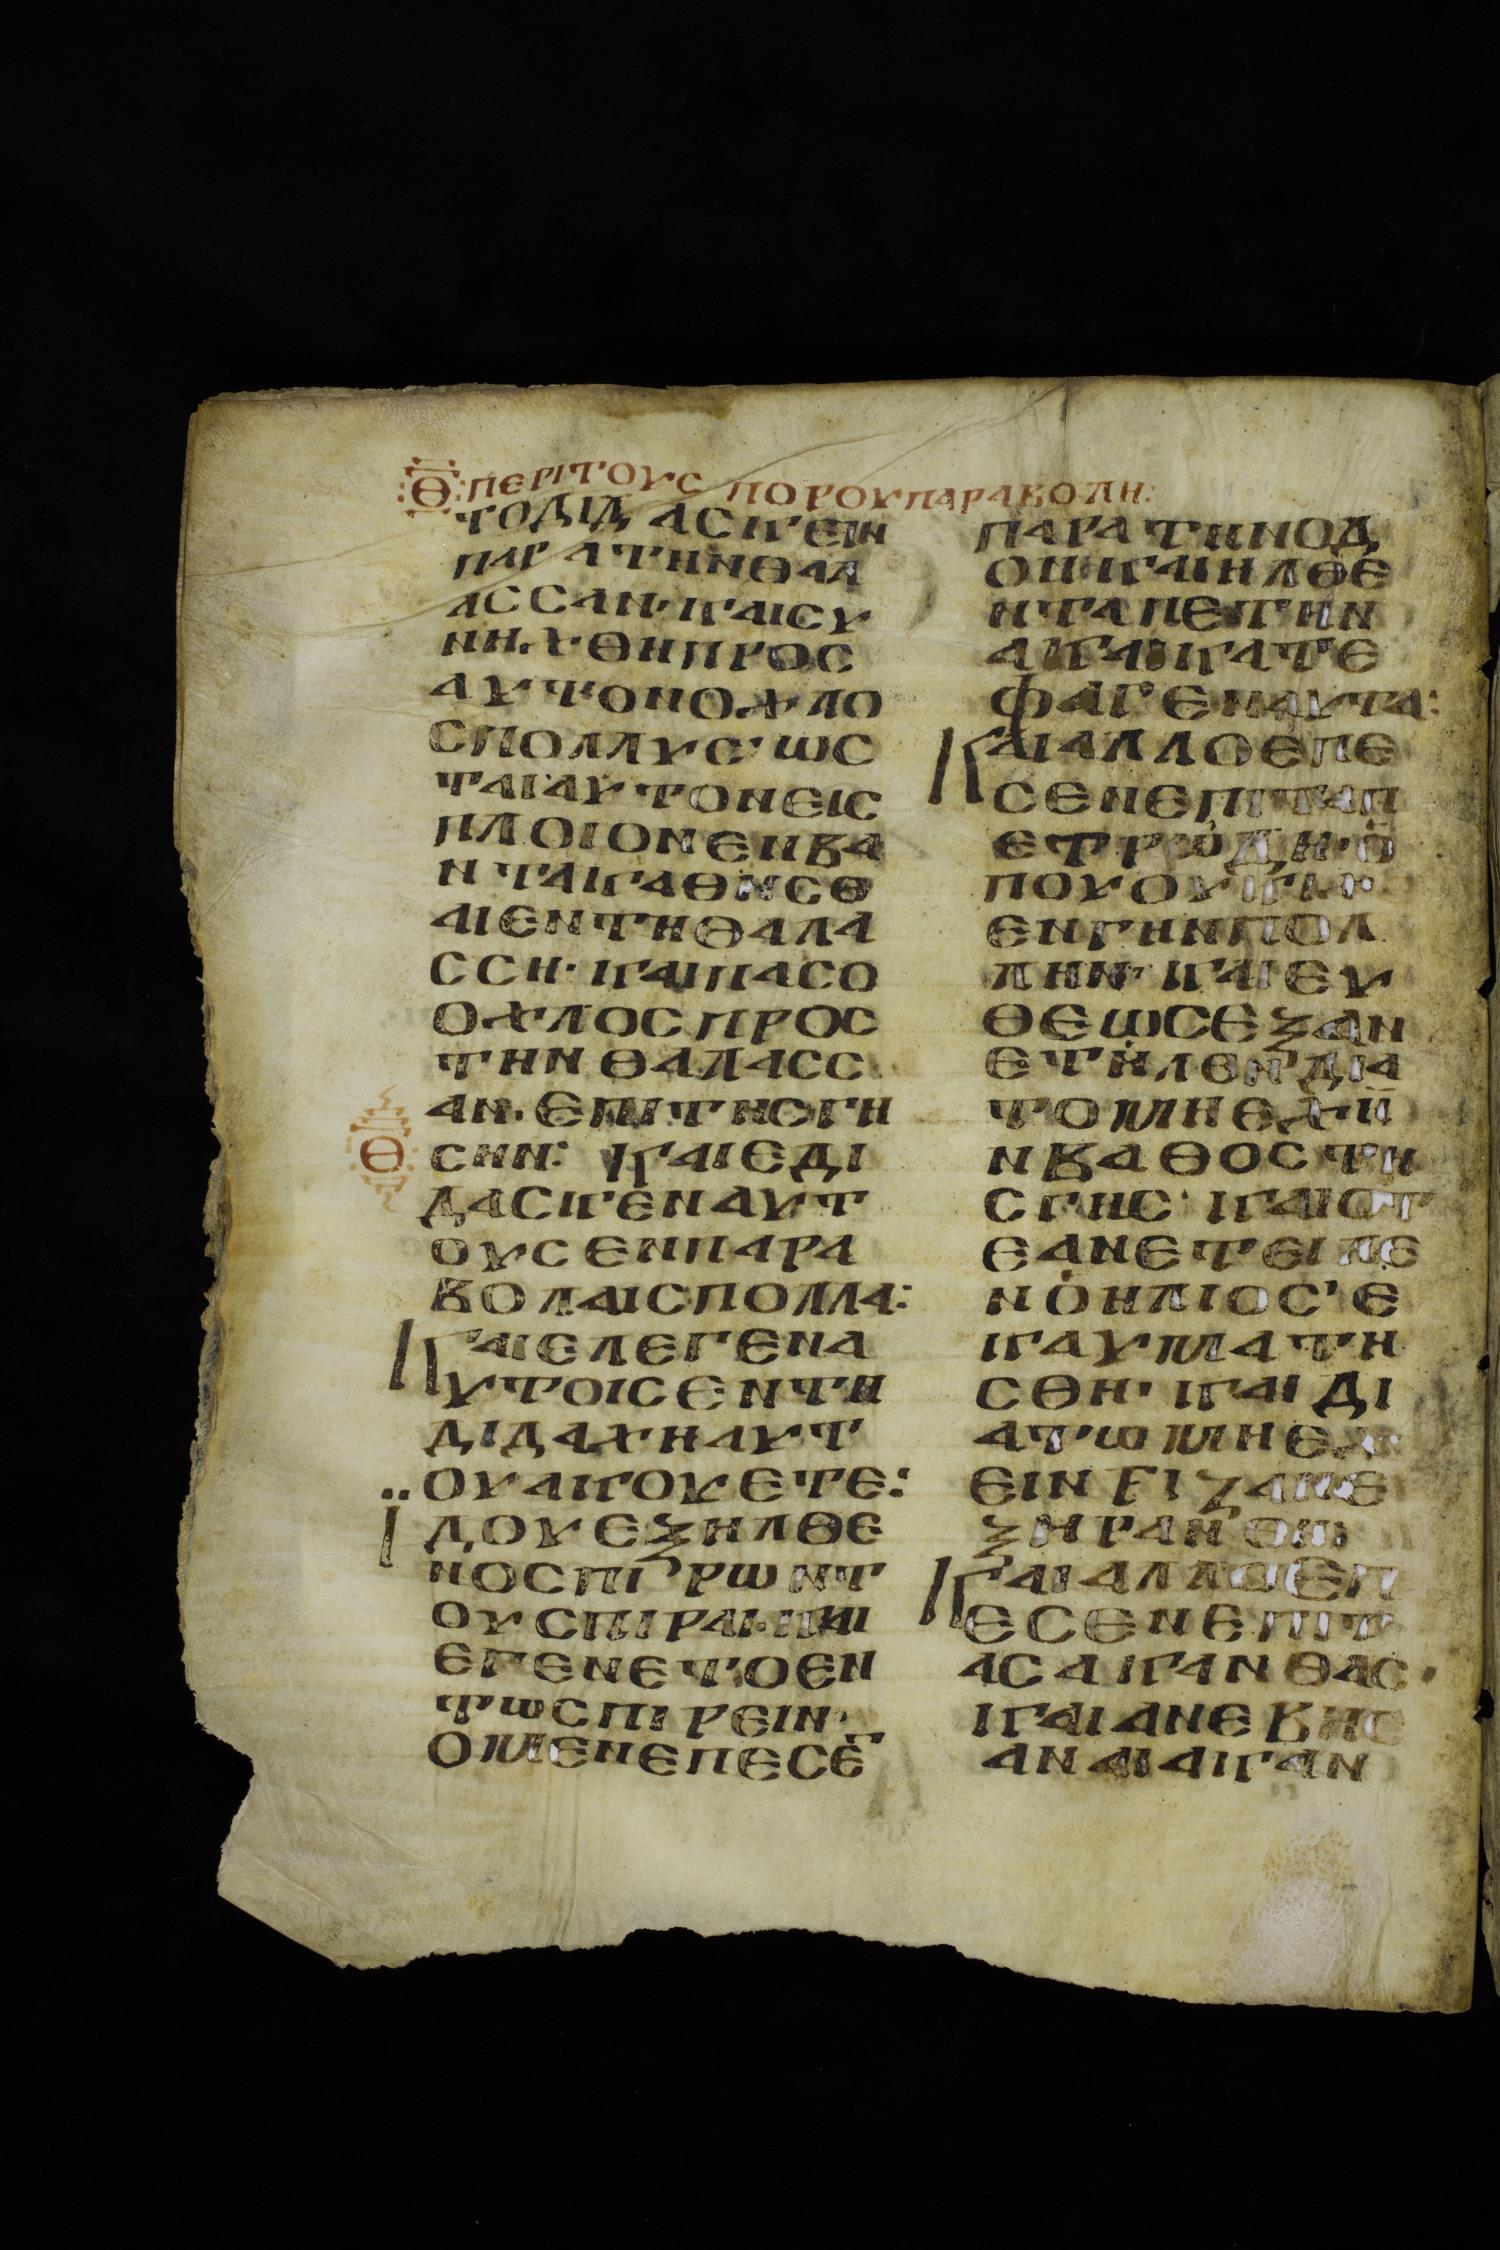 Θ ΠΕΡΙΤΟΥΣ ΠΟΡΟΥΠΑΡΑΒΟΛΗ:
ΤΟΔΙΔΑΣΚΕΙΝ
ΠΑΡΑΤΗΝΘΑΛ
ΑΣΣΑΝ·ΚΑΙΣΥ
ΝΗΧΘΗΠΡΟΣ
ΑΥΤΟΝΟΧΛΟ
ΣΠΟΛΛΥΣ·ΩΣ
ΤΑΙΑΥΤΟΝΕΙΣ
ΠΛΟΙΟΝΕΝΒΑ
ΝΤΑΙΚΑΘΗΣΘ
ΑΙΕΝΤΗΘΑΛΑ
ΣΣΗ·ΚΑΙΠΑΣΟ
ΟΧΛΟΣΠΡΟΣ
ΤΗΝΘΑΛΑΣΣ
ΑΝ·ΕΠΙΤΗΣΓΗ
Θ ΣΗΝ: ΚΑΙΕΔΙ
ΔΑΣΚΕΝΑΥΤ
ΟΥΣΕΝΠΑΡΑ
ΒΟΛΑΙΣΠΟΛΛΑ:
ΚΑΙΕΛΕΓΕΝΑ
ΥΤΟΙΣΕΝΤΗ
ΔΙΔΑΧΗΑΥΤ
ΟΥΑΚΟΥΕΤΕ:
ΪΔΟΥΕΞΗΛΘΕ
ΝΟΣΠΙΡΩΝΤ
ΟΥΣΠΙΡΑΙ·ΚΑΙ
ΕΓΕΝΕΤΟΕΝ
ΤΩΣΠΙΡΕΙΝ·
ΟΜΕΝΕΠΕΣΕ
ΠΑΡΑΤΗΝΟΔ
ΟΝ·ΚΑΙΗΛΘΕ
ΝΤΑΠΕΤΗΝ
ΑΚΑΙΚΑΤΕ
ΦΑΓΕΝΑΥΤΑ:
ΚΑΙΑΛΛΟΕΠΕ
ΣΕΝΕΠΙΤΑΠ
ΕΤΡΩΔΗ·Ο
ΠΟΥΟΥΚΕΙΧ
ΕΝΓΗΝΠΟΛ
ΛΗΝ·ΚΑΙΕΥ
ΘΕΩΣΕΞΑΝ
ΕΤΗΛΕΝΔΙΑ
ΤΟΜΗΕΧΕΙ
ΝΒΑΘΟΣΤΗ
ΣΓΗΣ·ΚΑΙΟΤ
ΕΑΝΕΤΕΙΛΕ
ΝΟΗΛΙΟΣ·Ε
ΚΑΥΜΑΤΗ
ΣΘΗ·ΚΑΙΔΙ
ΑΤΩΜΗΕΧ
ΕΙΝΡΙΖΑΝΕ
ΞΗΡΑΝΘΗ
ΚΑΙΑΛΛΟΕΠ
ΕΣΕΝΕΠΙΤ
ΑΣΑΚΑΝΘΑΣ·
ΚΑΙΑΝΕΒΗΣ
ΑΝΑΙΑΚΑΝ